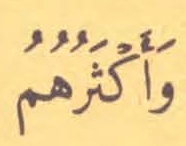 وَأَكْثَرُهُمُ